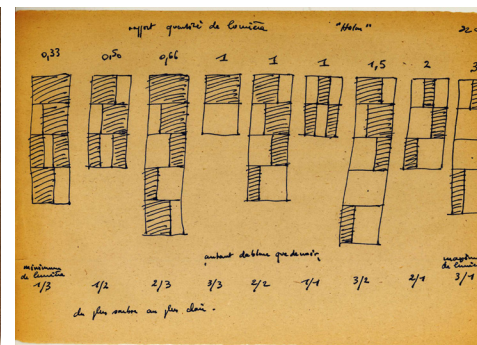 rapport quantité de lumière "Holm" 22
0,33 0,50 0,66 1 1 1 1,5 2 3
autant de blanc que de noir
minimum maximum
de lumière de lumière
1/3 1/2 2/3 3/3 2/2 1/1 3/2 2/1 3/1
du plus sombre au plus clair.